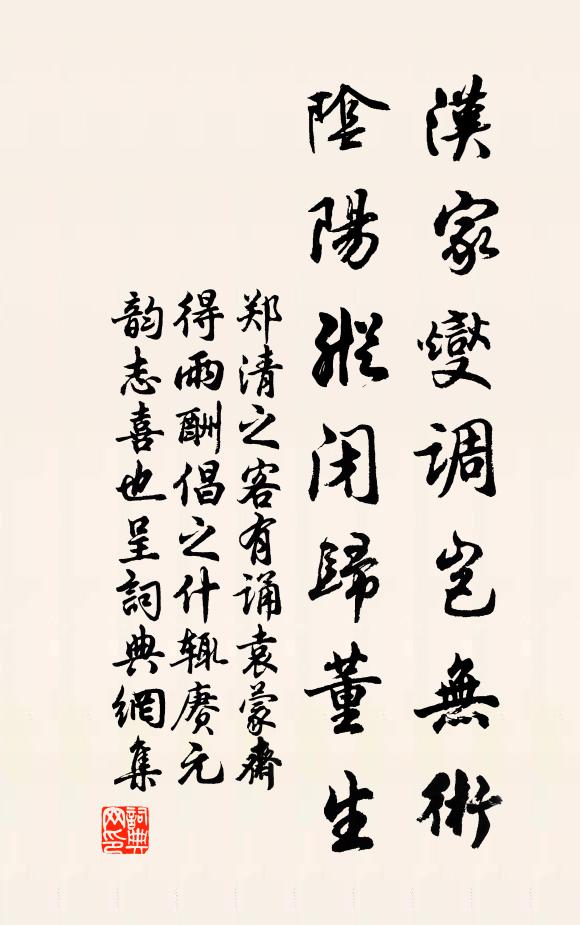 漢家燮調豈無術
陰陽縱閉歸董生
郑清之客有诵袁蒙齋
得雨酬倡之什辄赓元
韵志喜也呈詞典網集
詞典
网印